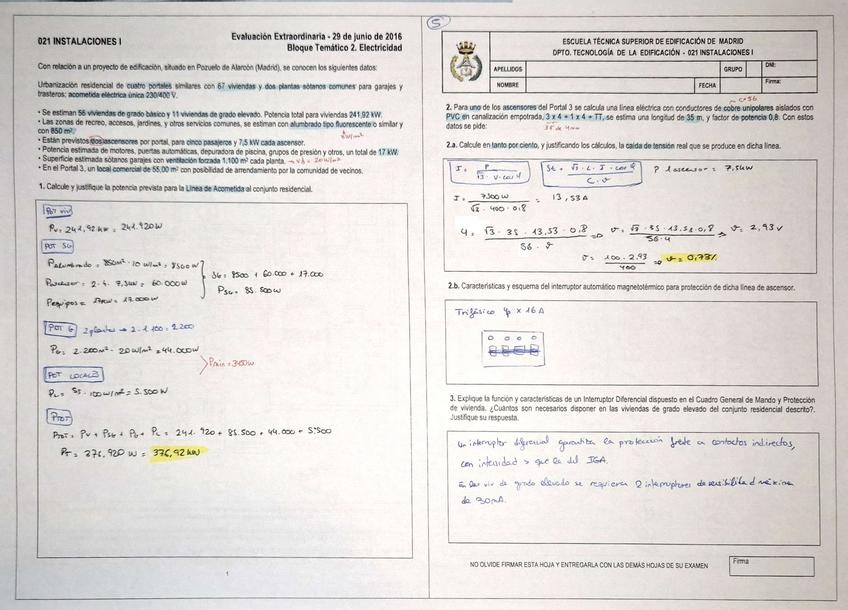 021 INSTALACIONES I
Evaluación Extraordinaria - 29 de junio de 2016
Bloque Temático 2. Electricidad
Con relación a un proyecto de edificación, situado en Pozuelo de Alarcón (Madrid), se conocen los siguientes datos:
Urbanización residencial de cuatro portales similares con 67 viviendas y dos plantas sótanos comunes para garajes y
trasteros; acometida eléctrica única 230/400 V.
• Se estiman 56 viviendas de grado básico y 11 viviendas de grado elevado. Potencia total para viviendas 241,92 kW.
• Las zonas de recreo, accesos, jardines, y otros servicios comunes, se estiman con alumbrado tipo fluorescente o similar y
con 850 m².
• Están previstos dos ascensores por portal, para cinco pasajeros y 7,5 kW cada ascensor.
• Potencia estimada de motores, puertas automáticas, depuradora de piscina, grupos de presión y otros, un total de 17 kW.
• Superficie estimada sótanos garajes con ventilación forzada 1.100 m² cada planta.
• En el Portal 3, un local comercial de 55,00 m² con posibilidad de arrendamiento por la comunidad de vecinos.
1. Calcule y justifique la potencia prevista para la Línea de Acometida al conjunto residencial.
POT VIV
Pv = 241,92 kW = 241.920W
POT SG
Palumbrado = 850m² · 10 W/m² = 8500 W
Pascensor = 2 · 4 · 7,5kW = 60.000 W
Pequipos = 17kW = 17.000W
SG = 8500 + 60.000 + 17.000
PSG = 85.500W
POT G 2 plantas → 2 · 1.100 = 2.200
PG = 2.200m² · 20W/m² = 44.000W
Pmin = 3450W
POT LOCALES
PL = 55 · 100W/m² = 5.500W
PTOT
PTOT = PV + PSG + PG + PL = 241.920 + 85.500 + 44.000 + 5.500
PT = 376.920 W = 376,92 kW
1
5
ESCUELA TÉCNICA SUPERIOR DE EDIFICACIÓN DE MADRID
DPTO. TECNOLOGÍA DE LA EDIFICACIÓN - 021 INSTALACIONES I
APELLIDOS
GRUPO
DNI:
NOMBRE
FECHA
Firma:
C=56
2. Para uno de los ascensores del Portal 3 se calcula una línea eléctrica con conductores de cobre unipolares aislados con
PVC en canalización empotrada, 3 x 4 + 1 x 4 + TT, se estima una longitud de 35 m, y factor de potencia 0,8. Con estos
datos se pide:
2.a. Calcule en tanto por ciento, y justificando los cálculos, la caída de tensión real que se produce en dicha línea.
I = P / √3 · V · cos φ
St = √3 · L · I · cos φ / C · v
P 1 ascensor = 7,5kW
I = 7500W / √3 · 400 · 0,8 = 13,53A
4 = √3 · 35 · 13,53 · 0,8 / 56 · v ⇒ v = √3 · 35 · 13,53 · 0,8 / 56 · 4 ⇒ v = 2,93v
v = 100 · 2,93 / 400 ⇒ v = 0,73%
2.b. Características y esquema del interruptor automático magnetotérmico para protección de dicha línea de ascensor.
Trifásico 4p x 16 A
3. Explique la función y características de un Interruptor Diferencial dispuesto en el Cuadro General de Mando y Protección
de vivienda. ¿Cuántos son necesarios disponer en las viviendas de grado elevado del conjunto residencial descrito?.
Justifique su respuesta.
Un interruptor diferencial garantiza la protección frente a contactos indirectos,
con intensidad > que la del IGA.
En las viv de grado elevado se requieren 2 interruptores de sensibilidad máxima
de 30mA.
NO OLVIDE FIRMAR ESTA HOJA Y ENTREGARLA CON LAS DEMÁS HOJAS DE SU EXAMEN
Firma